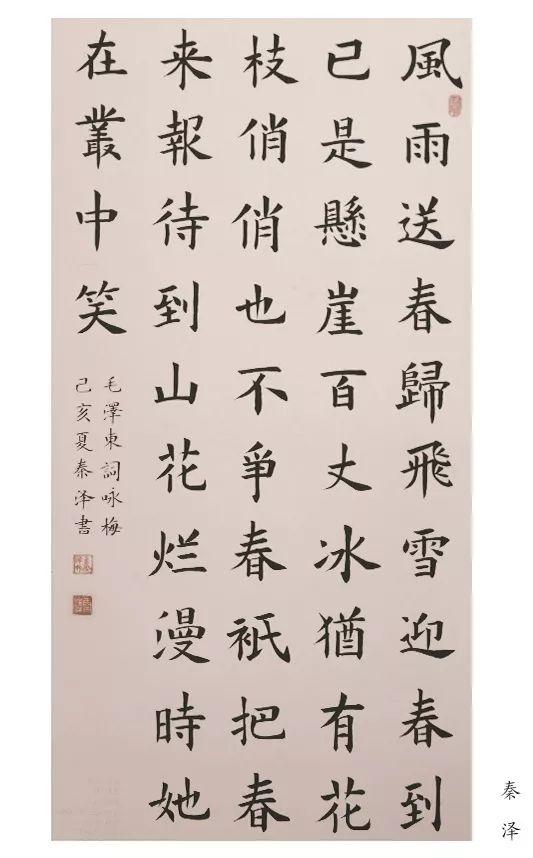 風雨送春歸飛雪迎春到
已是懸崖百丈冰猶有花
枝俏俏也不爭春衹把春
来報待到山花烂漫時她
在叢中笑
毛澤東詞咏梅
己亥夏秦泽書
秦泽